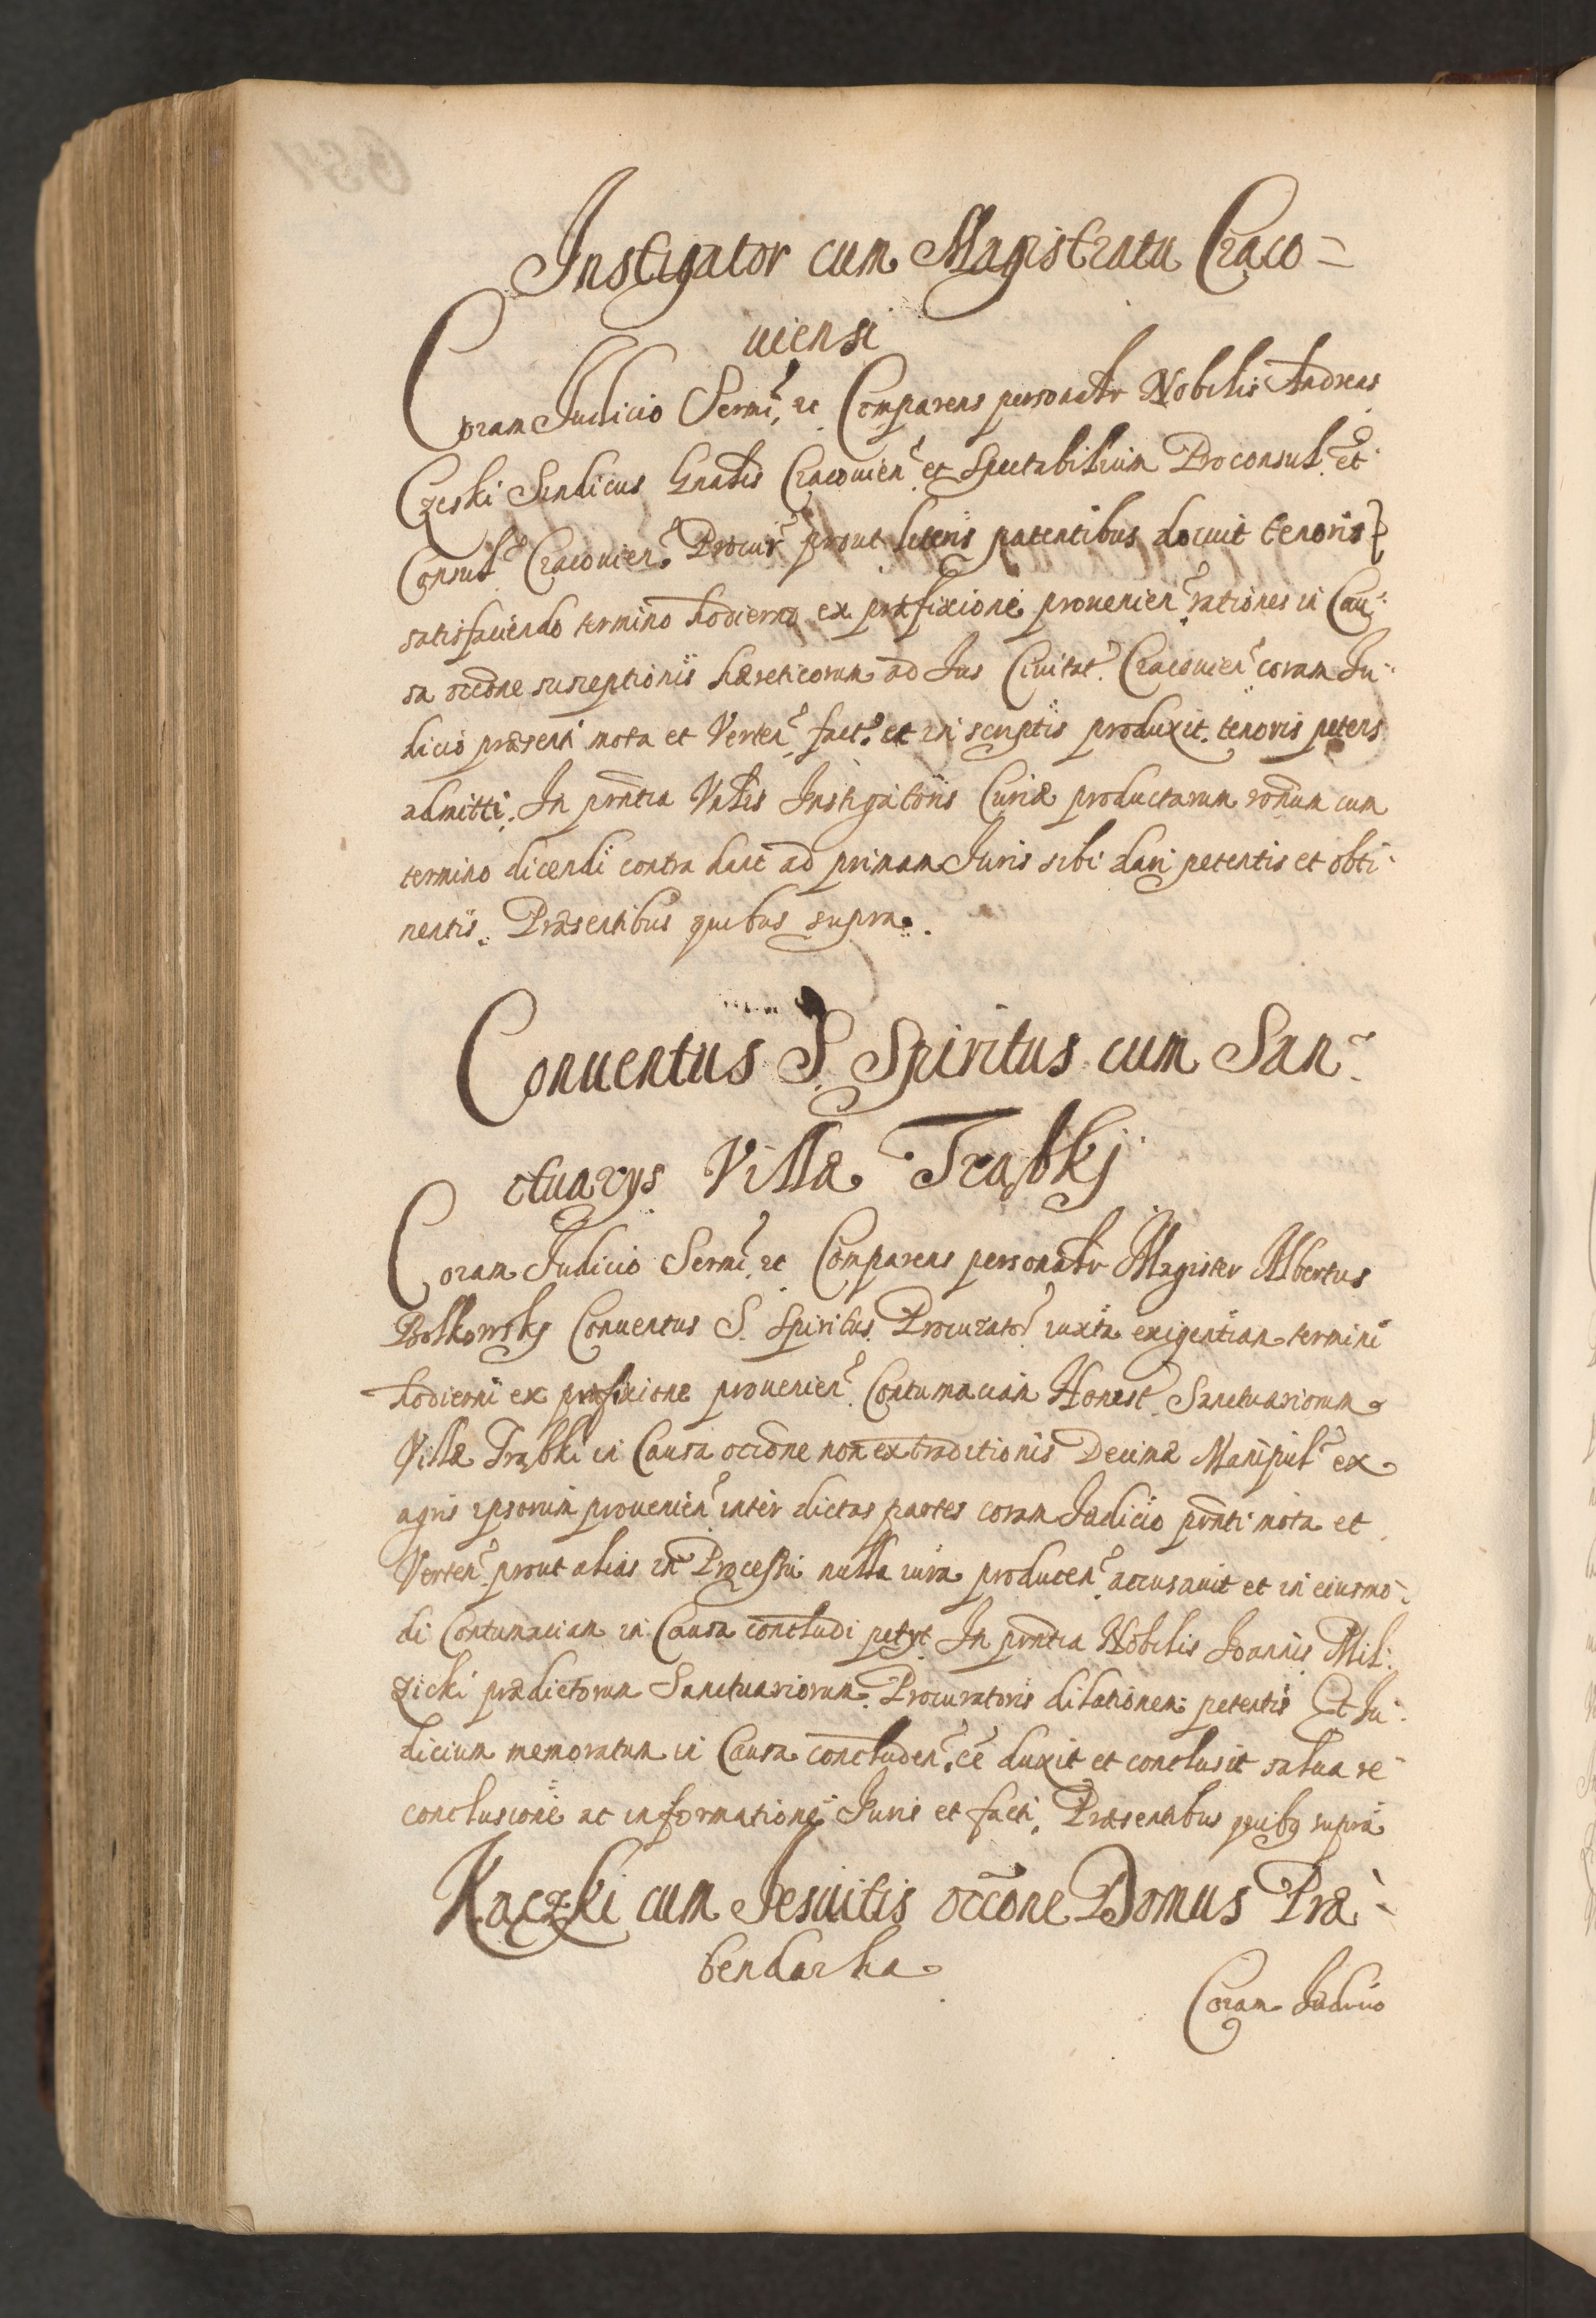 Instigator cum Magistratu Craco=
uiensi
Coram Judicio Sermi, etc Comparens personatr Nobilis Andreas
Czeski Sindicus Gnalis Cracouien et Spectabilium Proconsul et
Consul Cracouien Procur prout literis patentibus docuit tenoris
satisfaciendo termino hodierno ex præfixione prouenien rationes in Cau:
sa occone susceptionis hæreticorum ad Jus Ciuitat Cracouien coram Ju:
dicio præsenti mota et Verten fact et in scriptis produxit tenoris petens
admitti. In pntia Vnlis Instigatoris Curiæ productarum ronum cum
termino dicendi contra hanc ad primam Juris sibi dari petentis et obti:
nentis. Præsentibus quibus supra.
Conuentus S. Spiritus cum San:
ctuarys Villæ Trąbkj
Coram Judicio Sermi etc Comparens personatr Magister Albertus
Bolkowsky Conuentus S. Spiritus Procurator iuxta exigentiam termini
hodierni ex præfixione prouenien Contumaciam Honest Sanctuariorum
Villæ Trąbki in Causa occone non extraditionis Decimæ Manipul ex
agris ipsorum prouenien inter dictas partes coram Judicio pnti mota et
Verten prout alias in Processu nulla iura producen accusauit et in eiusmo:
di Contumaciam in Causa concludi petyt In pntia Nobilis Joannis Mil:
zicki prædictorum Sanctuariorum Procuratoris dilationem petentis Et Ju:
dicium memoratum in Causa concluden ee duxit et conclusit salua re
conclusione ac informatione Juris et facti. Præsentibus quibq supra
Kaczki cum Jesuitis occone Domus Præ:
bendarha
Coram Judicio